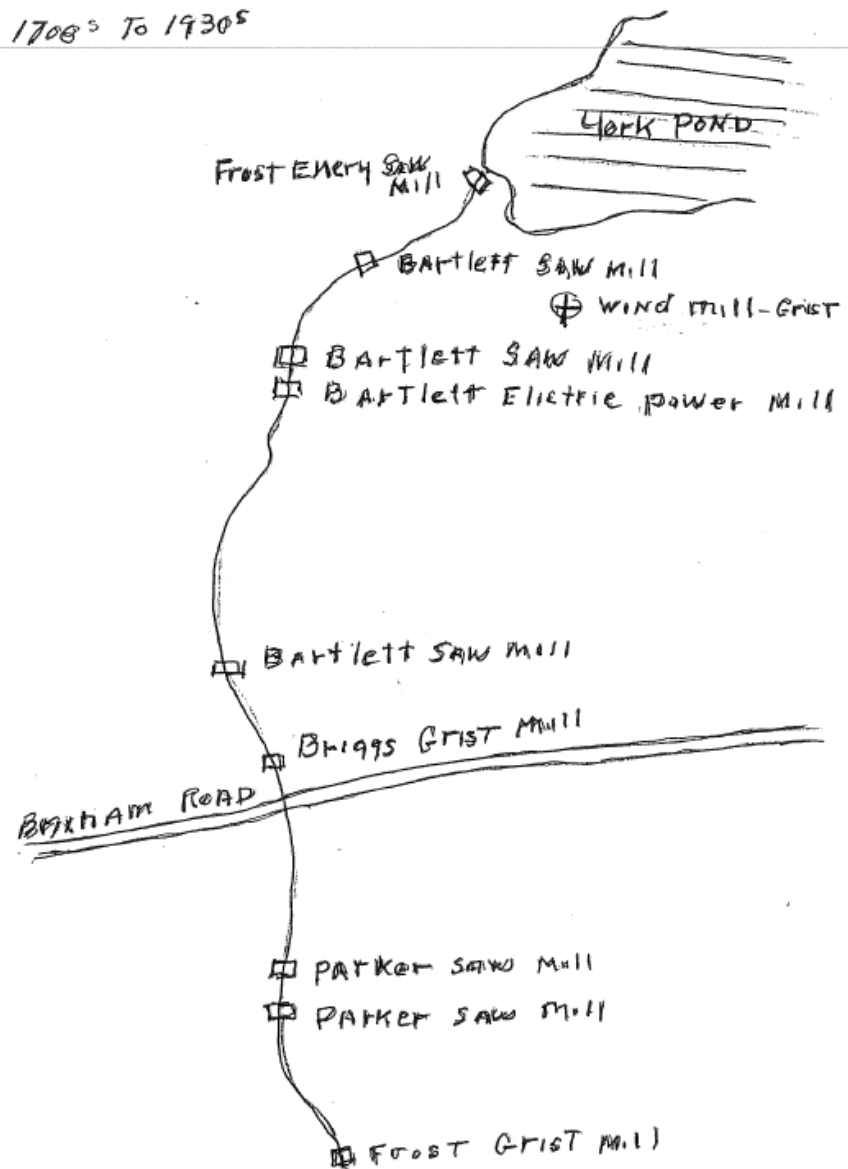 1700s To 1930s
York POND
Frost Emery SAW
Mill
BArtlett SAW Mill
WINd Mill-GrIST
BArtlett SAW Mill
BArTlett Elictric power Mill
BArtlett SAW Mill
Briggs GrIST Mill
ROAD
PArKer SAW Mill
PArKer SAW Mill
FroST GrIST Mill